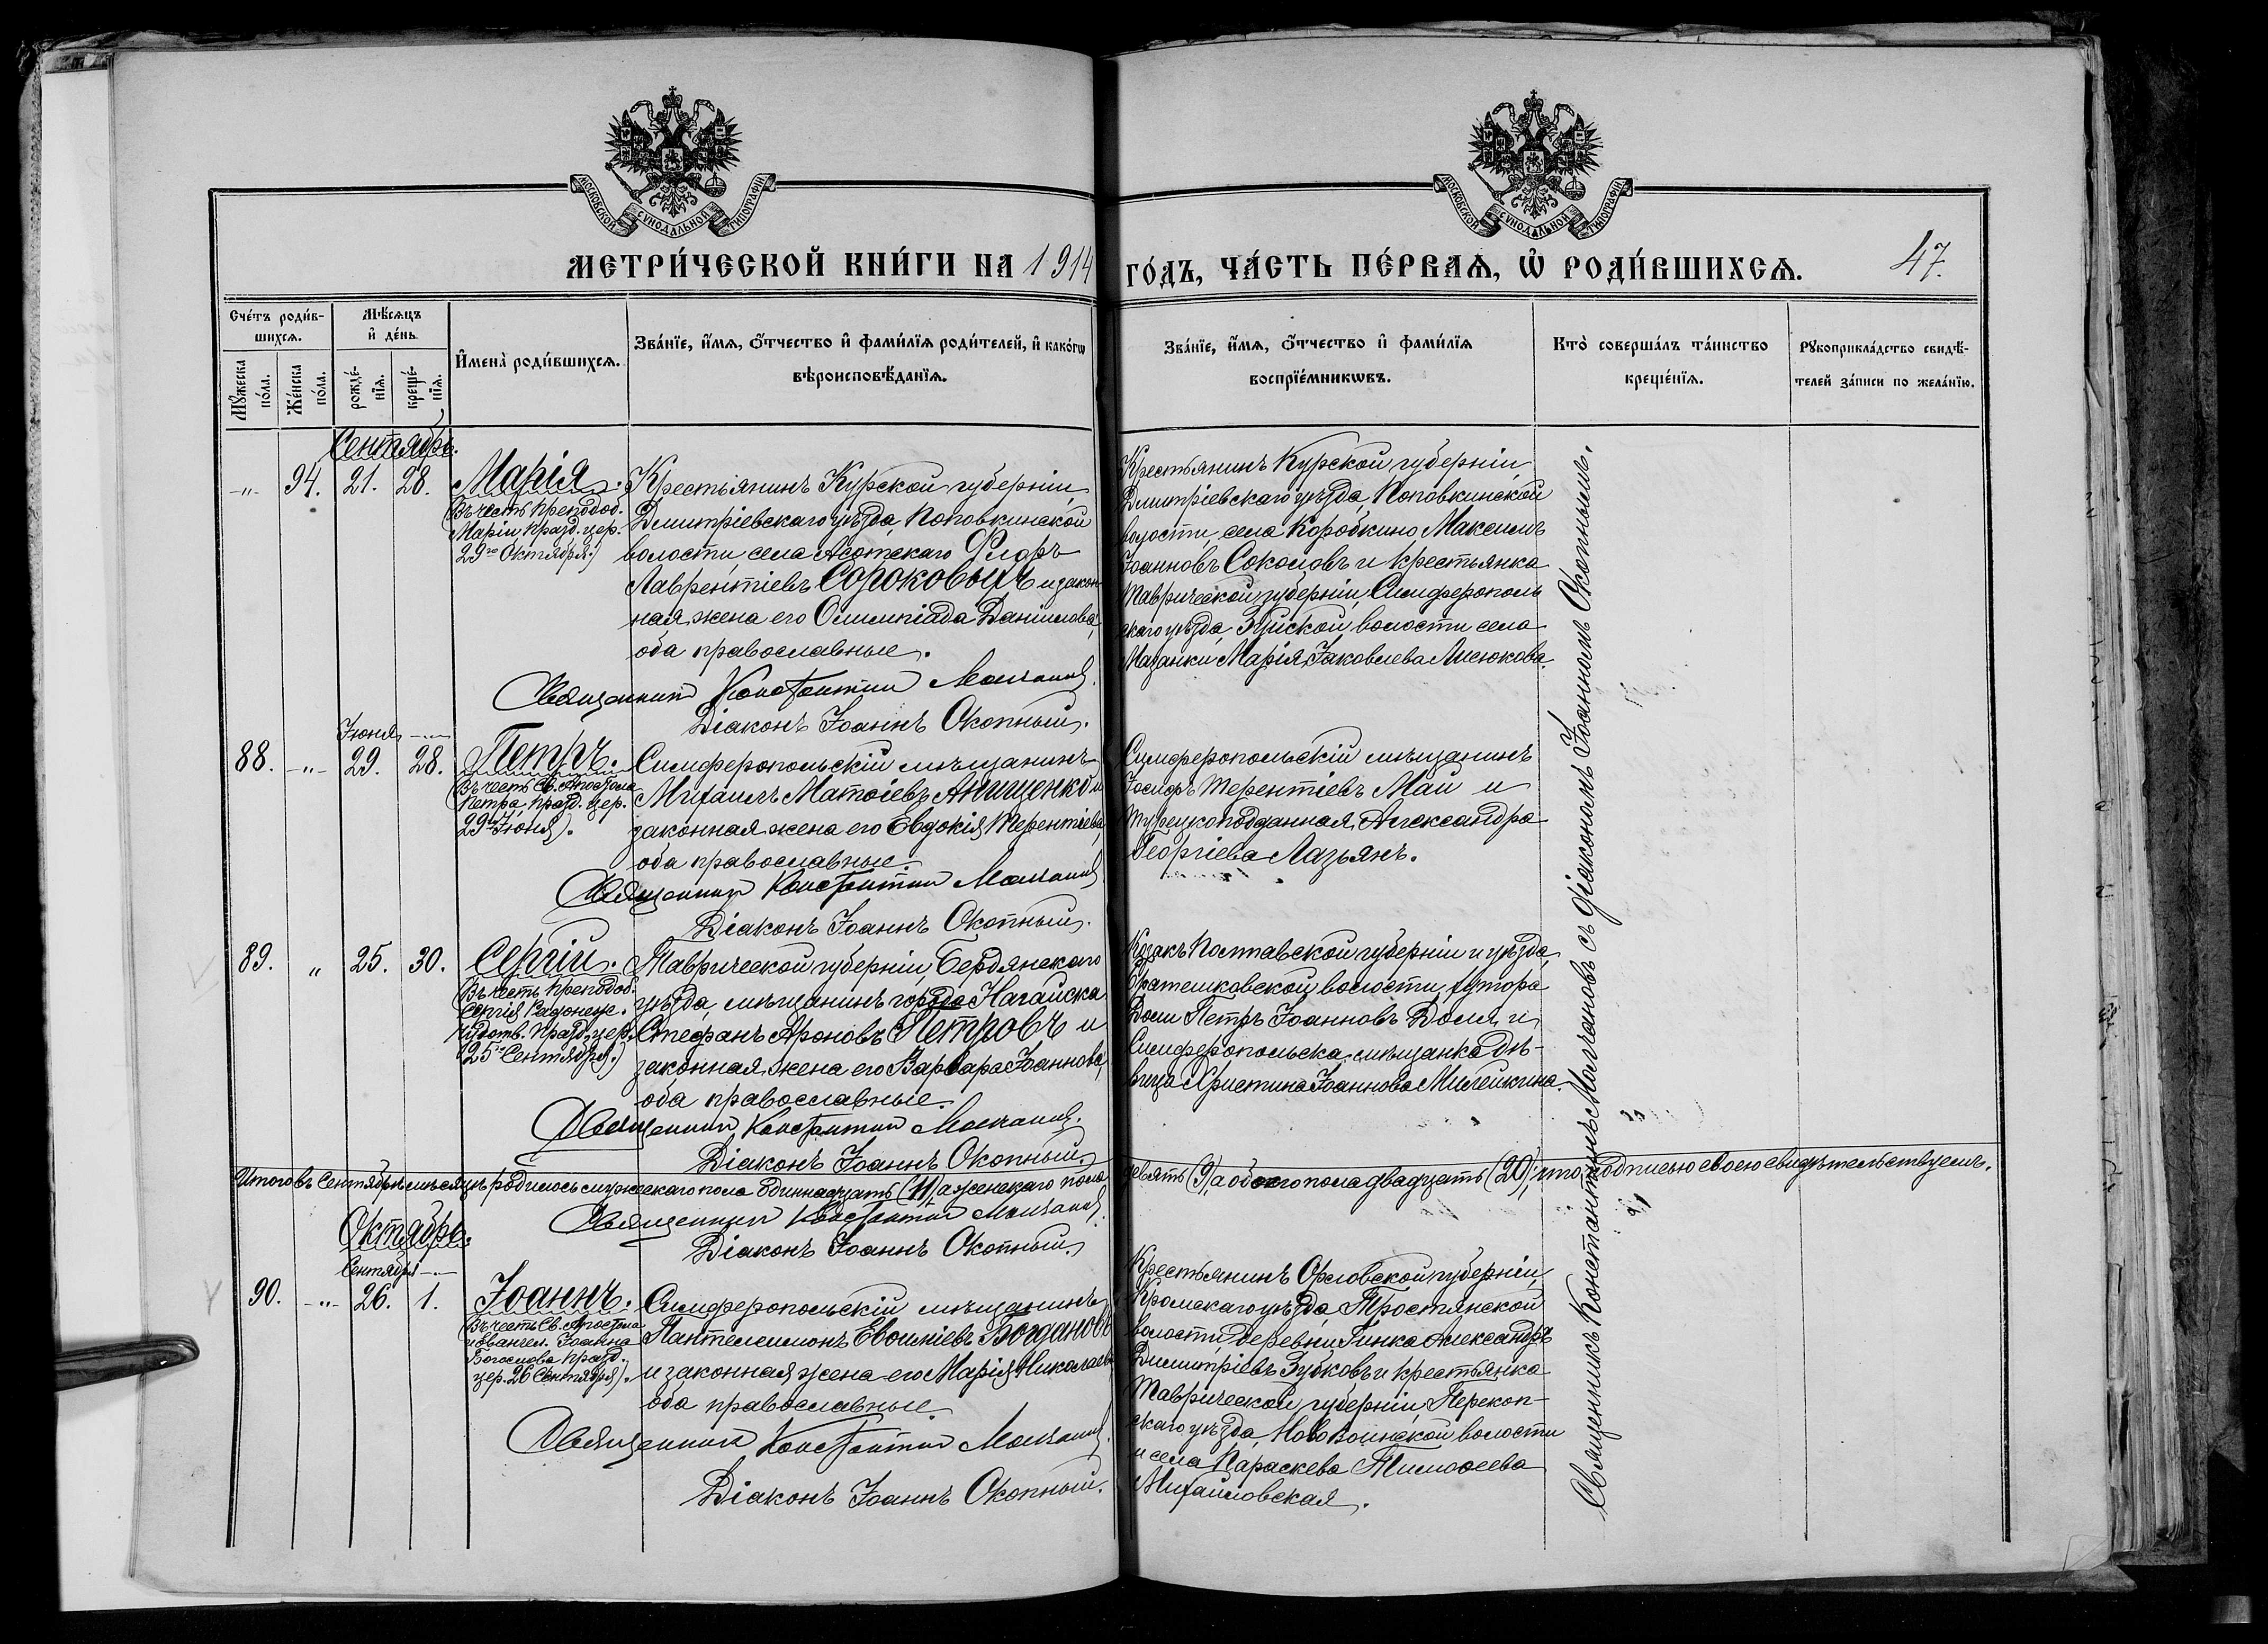 МОСКОВСКОЙ СУНОДАЛЬНОЙ ТИПОГРАФІИ
МОСКОВСКОЙ СУНОДАЛЬНОЙ ТИПОГРАФІИ
МЕТРИ́ЧЕСКОЙ КНИ́ГИ НА 1914
ГО́ДЪ, ЧА́СТЬ ПЕ́РВАѦ, Ѡ РОДИ́ВШИХСѦ.
47.
Сче́тъ роди́в-
шихсѧ.
Мѣ́сѧцъ
и҆ де́нь.
И҆мена̀ роди́вшихсѧ.
Зва́нїе, и҆́мѧ, ѻ҆́тчество и҆ фами́лїѧ роди́телей, и҆ како́гѡ
вѣроисповѣ́данїѧ.
Мꙋ́жеска
по́ла.
Же́нска
по́ла.
рожде́-
нїѧ.
креще́-
нїѧ.
Зва́нїе, и҆́мѧ, ѻ҆́тчество и҆ фами́лїѧ
воспрїе́мникѡвъ.
Кто̀ соверша́лъ та́инство
креще́нїѧ.
Рꙋкоприкла́дство свидѣ́-
телей за́писи по жела́нїю.
Сентябрь.
-"- 94. 21. 28. Марія.
(Въ честь преподоб.
Маріи празд. цер.
29го Октября.)
Крестьянинъ Курской губерніи,
Дмитріевскаго уѣзда, Поповкинской
волости, села Асотскаго Ѳеодоръ
Лаврентіевъ Сороковыхъ и закон
ная жена его Олимпіада Даниилова,
оба православные.
Священникъ Константинъ Молчановъ.
Діаконъ Іоаннъ Окопный.
Крестьянинъ Курской губерніи,
Дмитріевскаго уѣзда, Поповкинской
волости, села Коробкино Максимъ
Іоанновъ Соколовъ и крестьянка
Таврической губерніи, Симферополь
скаго уѣзда, Зуйской волости села
Мазанки Марія Іаковлева Лисюкова.
Іюня -"-
88. -"- 29. 28. Петръ.
(Въ честь Св. Апостола
Петра, празд. цер.
29го Іюня).
Симферопольскій мѣщанинъ
Михаилъ Матѳіевъ Анищенко и
законная жена его Евдокія Терентіева,
оба православные.
Священникъ Константинъ Молчановъ
Діаконъ Іоаннъ Окопный.
Симферопольскій мѣщанинъ
Іосифъ Терентіевъ Май и
турецкоподданная Александра
Георгіева Лазьянъ.
89. " 25. 30. Сергій.
(Въ честь преподоб.
Сергія Радонеж.
чудотв. празд. цер.
25го Сентября.)
Таврической губерніи, Бердянскаго
уѣзда, мѣщанинъ города Нагайска
Стефанъ Ароновъ Петровъ и
законная жена его Варвара Іоаннова,
оба православные.
Священникъ Константинъ Молчановъ.
Діаконъ Іоаннъ Окопный.
Козакъ Полтавской губерніи и уѣзда,
Братешковской волости, хутора
Доли Петръ Іоанновъ Доля и
Симферопольска мѣщанка дѣ-
вица Христина Іоаннова Милешкина.
Итого въ Сентябрѣ мѣсяцѣ родилось мужескаго пола одиннадцать (11), а женскаго пола
девять (9), а обоего пола двадцать (20); что подписью своею свидѣтельствуемъ.
Священникъ Константинъ Молчановъ.
Діаконъ Іоаннъ Окопный.
Октябрь.
Сентября -"-
90. -"- 26. 1. Іоаннъ.
(Въ честь Св. Апостола
и Евангел. Іоанна
Богослова празд.
цер. 26 Сентября).
Симферопольскій мѣщанинъ
Пантелеимонъ Евѳиміевъ Богдановъ
и законная жена его Марія Николаева,
оба православные.
Священникъ Константинъ Молчановъ.
Діаконъ Іоаннъ Окопный.
Крестьянинъ Орловской губерніи,
Кромскаго уѣзда, Тростянской
волости, деревни Гинка Александръ
Димитріевъ Зубковъ и крестьянка
Таврической губерніи, Перекоп-
скаго уѣзда, Ново Воинской волости
и села Параскева Тимоѳеева
Михайловская.
Священникъ Константинъ Молчановъ съ діакономъ Іоанномъ Окопнымъ.